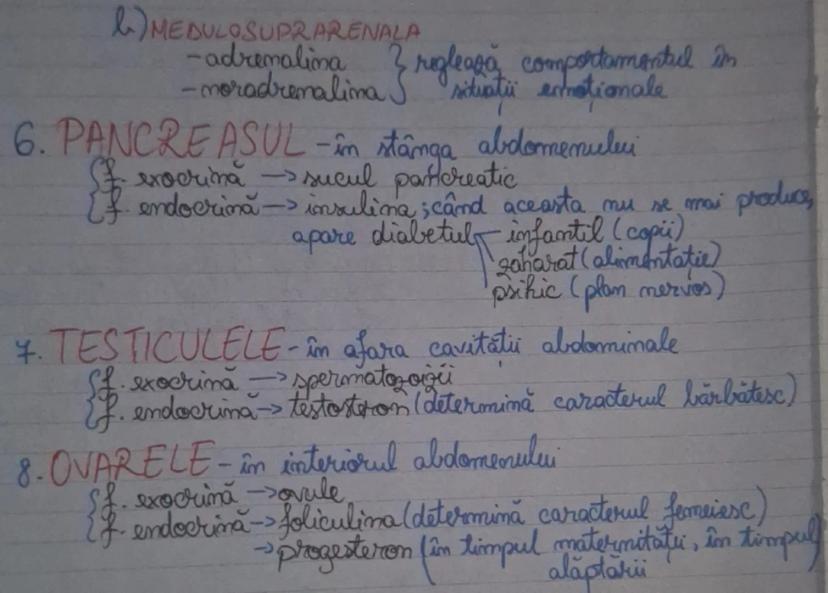 b) MEDULOSUPRARENALA
-adrenalina } reglează comportamentul în
-noradrenalina } situații emoționale
6. PANCREASUL - în stânga abdomenului
{ f. exocrină → sucul pancreatic
{ f. endocrină → insulina; când aceasta nu se mai produce,
apare diabetul - infantil (copii)
zaharat (alimentație)
psihic (plan nervos)
7. TESTICULELE - în afara cavității abdominale
{ f. exocrină → spermatozoizii
{ f. endocrină → testosteron (determină caracterul bărbătesc)
8. OVARELE - în interiorul abdomenului
{ f. exocrină → ovule
{ f. endocrină → foliculina (determină caracterul femeiesc)
→ progesteron (în timpul maternității, în timpul
alăptării